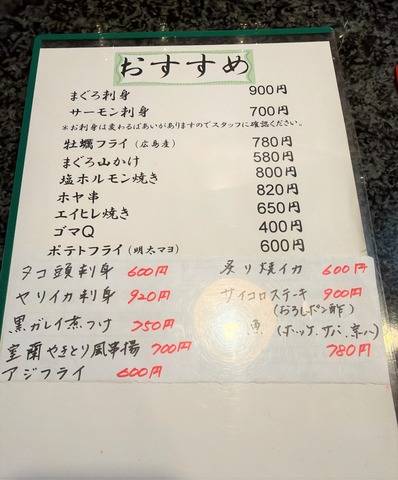 おすすめ
まぐろ刺身 900円
サーモン刺身 700円
*お刺身は変わるばあいがありますのでスタッフに確認ください。
牡蠣フライ(広島産) 780円
まぐろ山かけ 580円
塩ホルモン焼き 800円
ホヤ串 820円
エイヒレ焼き 650円
ゴマQ 400円
ポテトフライ(明太マヨ) 600円
タコ頭刺身 600円
ヤリイカ刺身 920円
黒ガレイ煮つけ 750円
室蘭やきとり風串揚 700円
アジフライ 600円
炙り焼イカ 600円
サイコロステーキ 900円
(おろしポン酢)
魚(ホッケ,サバ,
780円